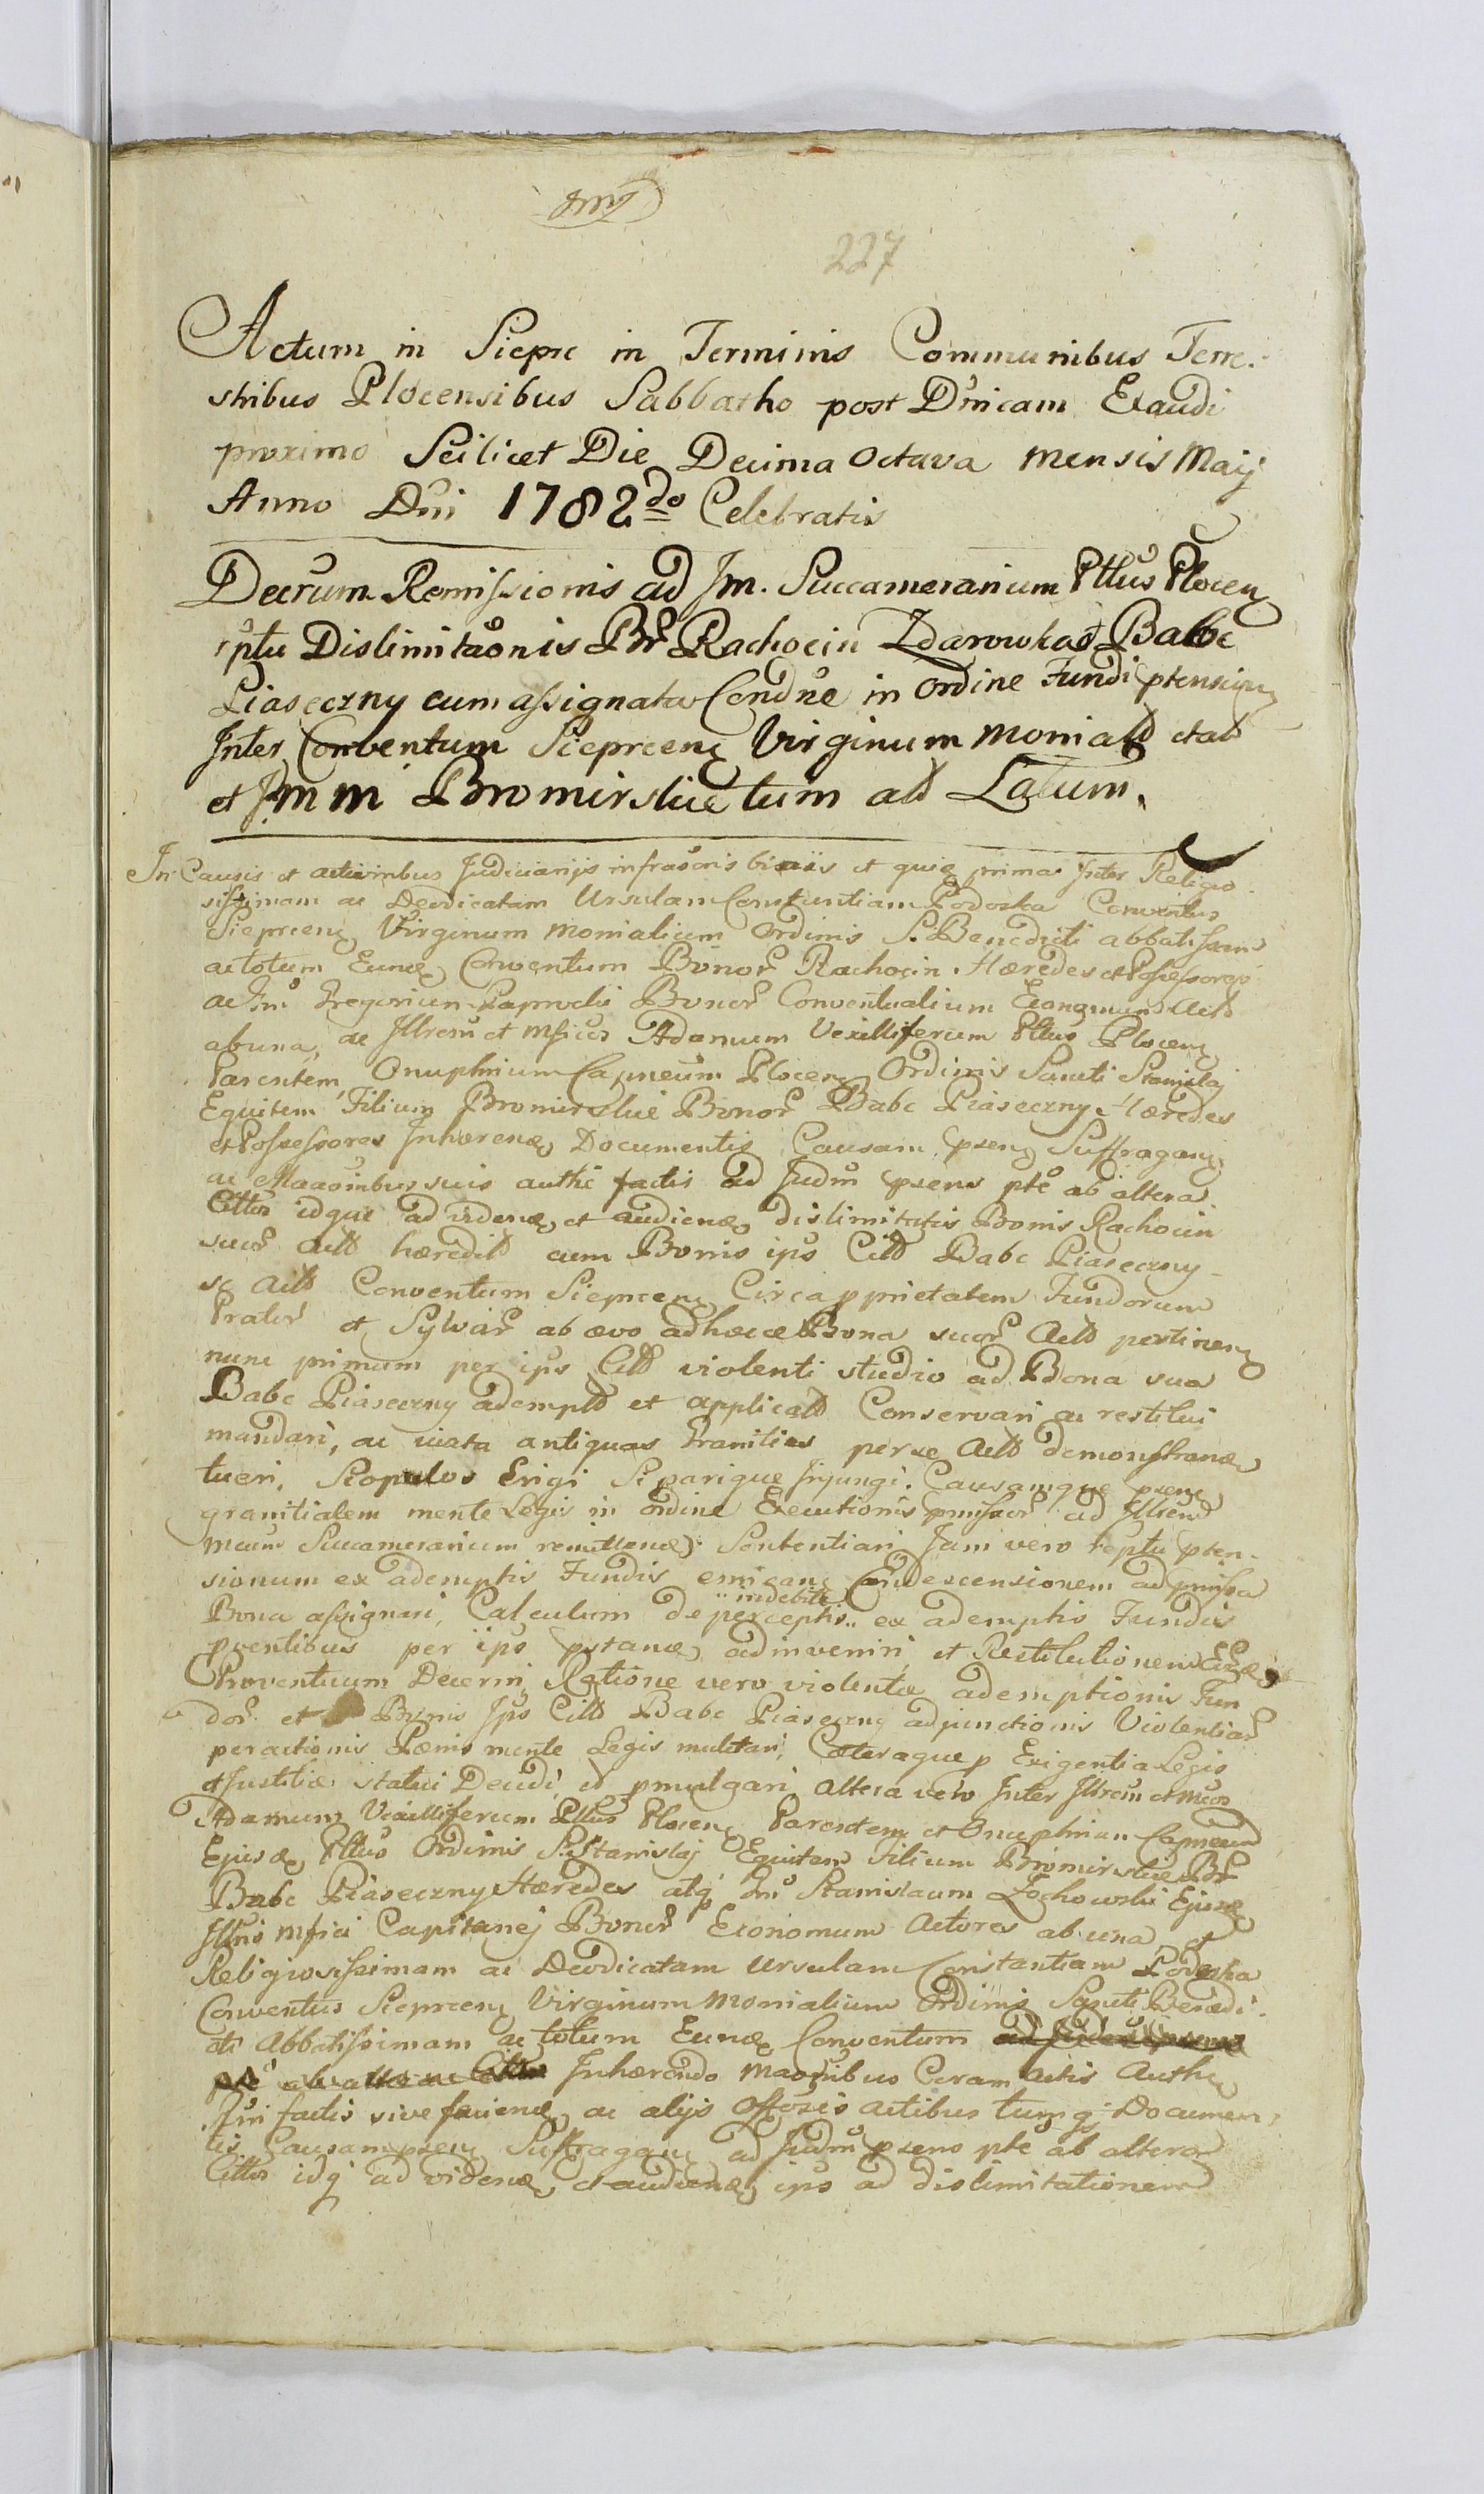 227
Actum in Siepre in Terminis Communibus Terre-
stribus Plocensibus Sabbatho post Dnicam Exaudi
proximo Scilicet Die Decima Octava mensis Maij
Anno Dni 1782do Celebratis
Decrum Remissionis ad Jm. Succamerarium Pttus Plocen
rptu Dislimitaonis Br Rachocin Zdarowka Babe
Piaseczny cum assignata Condne in ordine Fundi ptensium
Inter Conventum Sieprcen Virginum monial
et Jmm Bromirskie tum ad Latum.
In Causis et actionibus Judiciarijs infrascris binis et quie prima Inter Religio-
sissimam ac Deodicatam Ursulam Constantiam Podoska Conventus
Sieprcen Virginum monialium Ordinis S. Benedicti abbatissam
ac totum Eund Conventum Bonor Rachocin Hæredes et Possessores
ac Jm Gregorium Bonor Conventualium Economum Act
ab una, ac Illrem et Mficos Adamum Vexilliferum Pttus Plocen
Parentem, Onuphrium Capneum Plocen Ordinis Sancti Stanislaj
Equitem Filium Bromirskie Bonor Babe Piaseczny Hæredes
et Possessores Inhæren Documentis Causam psen Suffragan
ac Maaonibus suis authe factis ad Judm psens pte ab altera
Cittos idque ad viden et audien dislimitatis Bonis Rachocin
suor Act hæredit cum Bonis ips Citt Babe Piaseczny
se Act Conventum Sieprcen Circa pprietatem Fundorum
Prator et Sylvar ab ævo ad hæcce Bona suor Act pertinen
nunc primum per ips Citt violenti studio ad Bona sua
Babe Piaseczny adempt et applicat Conservari ac restitui
mandari, ac iuxta antiquas Granities per se Act demonstran
tueri, Scopulos Erigi Separique Injungi. Causamque psen
granitialem mente Legis in ordine Executionis pmissor ad Illrem
Mcum Succamerarium remitten Sententiari Jam vero rptu pten-
sionum ex ademptis Fundis emican Condescensionem ad pmissa
Bona assignari, Calculum de indebite perceptis ex ademptis Fundis
pventibus per ips pstan adinveniri et Restitutionem
Proventuum Decerni Ratione vero violentæ ademptionis Fun
dor et Bonis Ips Citt Babe Piaseczny adjunctionis Violentiar
peractionis Pænis mente Legis mulctari, Cæteraque p Exigentia Legis
et Justitiæ statui Decidi et pmulgari, altera vero Inter Illrem et Mcos
Adamum Vexilliferum Pttus Plocen Parentem et Onuphrium Capneum
Ejusd Pttus Ordinis S. Stanislaj Equitem Filium Bromirskie Br
Babe Piaseczny Hæredes atq Jm Stanislaum Zochowski Ejusd
Illris Mfici Capitanej Bonor Economum Actores ab una, et
Religiosissimam ac Deodicatam Ursulam Constantiam Podoska
Conventus Sieprcen Virginum Monialium Ordinis Sancti Benedi-
cti Abbatissimam ac totum Eund Conventum
Inhærendo Maonibus Coram Actis Authe
Juri factis sive facien ac alijs Offosis actibus tumq Documen-
tis Causam psen Suffragan ad Judm psens pte ab altera
Cittos idq ad viden et audien ips ad dislimitationem